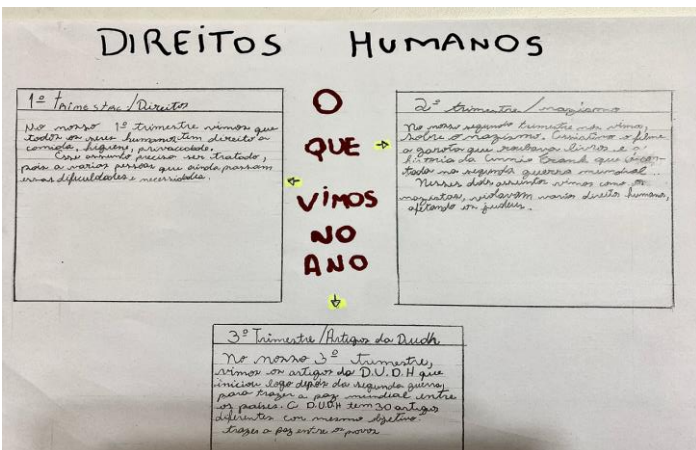 DIREITOS HUMANOS
1º trimestre/Direitos
No nosso 1º trimestre vimos que
todos os seres humanos tem direito a
comida, higiene, privacidade.
Esse assunto precisa ser tratado,
pois a varias pessoas que ainda passam
essas dificuldades e necessidades.
O
QUE
VIMOS
NO
ANO
2º trimestre/nazismo
No nosso segundo trimestre nós vimos,
sobre o nazismo. Assistimos o filme
a garota que roubava livros e a
história da Anne Frank que é con-
tada na segunda guerra mundial...
Nesses dois assuntos vimos como os
nazistas, violavam varios direitos humanos,
afetando os judeus.
3º Trimestre/Artigos da Dudh
No nosso 3º trimestre,
vimos os artigos da D.U.D.H que
iniciou logo depois da segunda guerra,
para trazer a paz mundial entre
os países. A D.U.D.H tem 30 artigos
diferentes com mesmo objetivo:
trazer a paz entre os povos